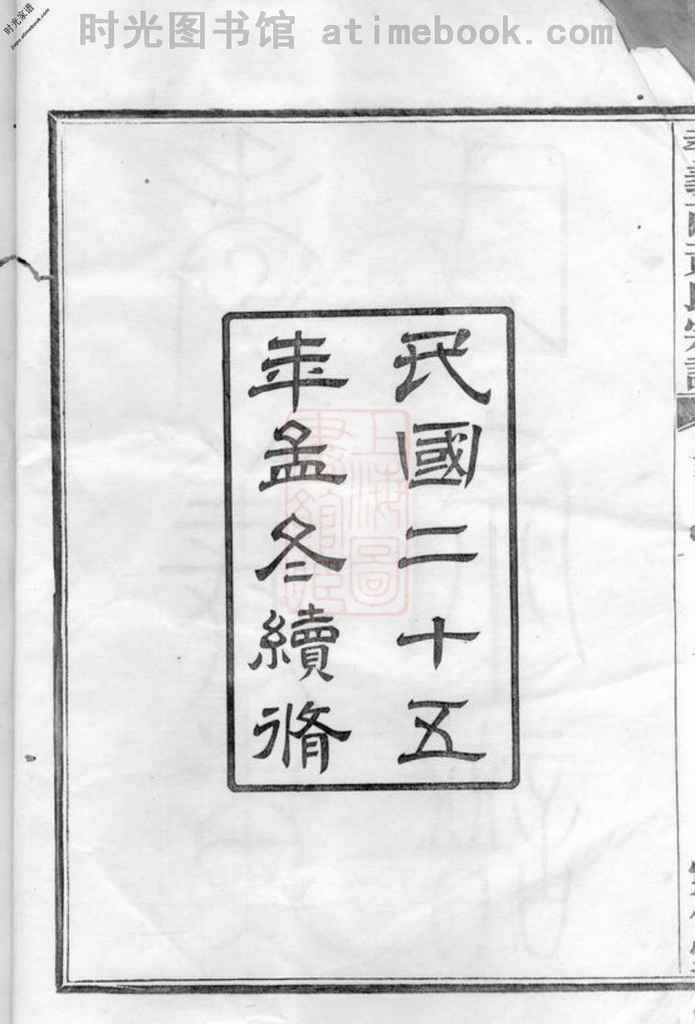 时光图书馆 atimebook.com
时光家谱
民國二十五
年孟冬續脩